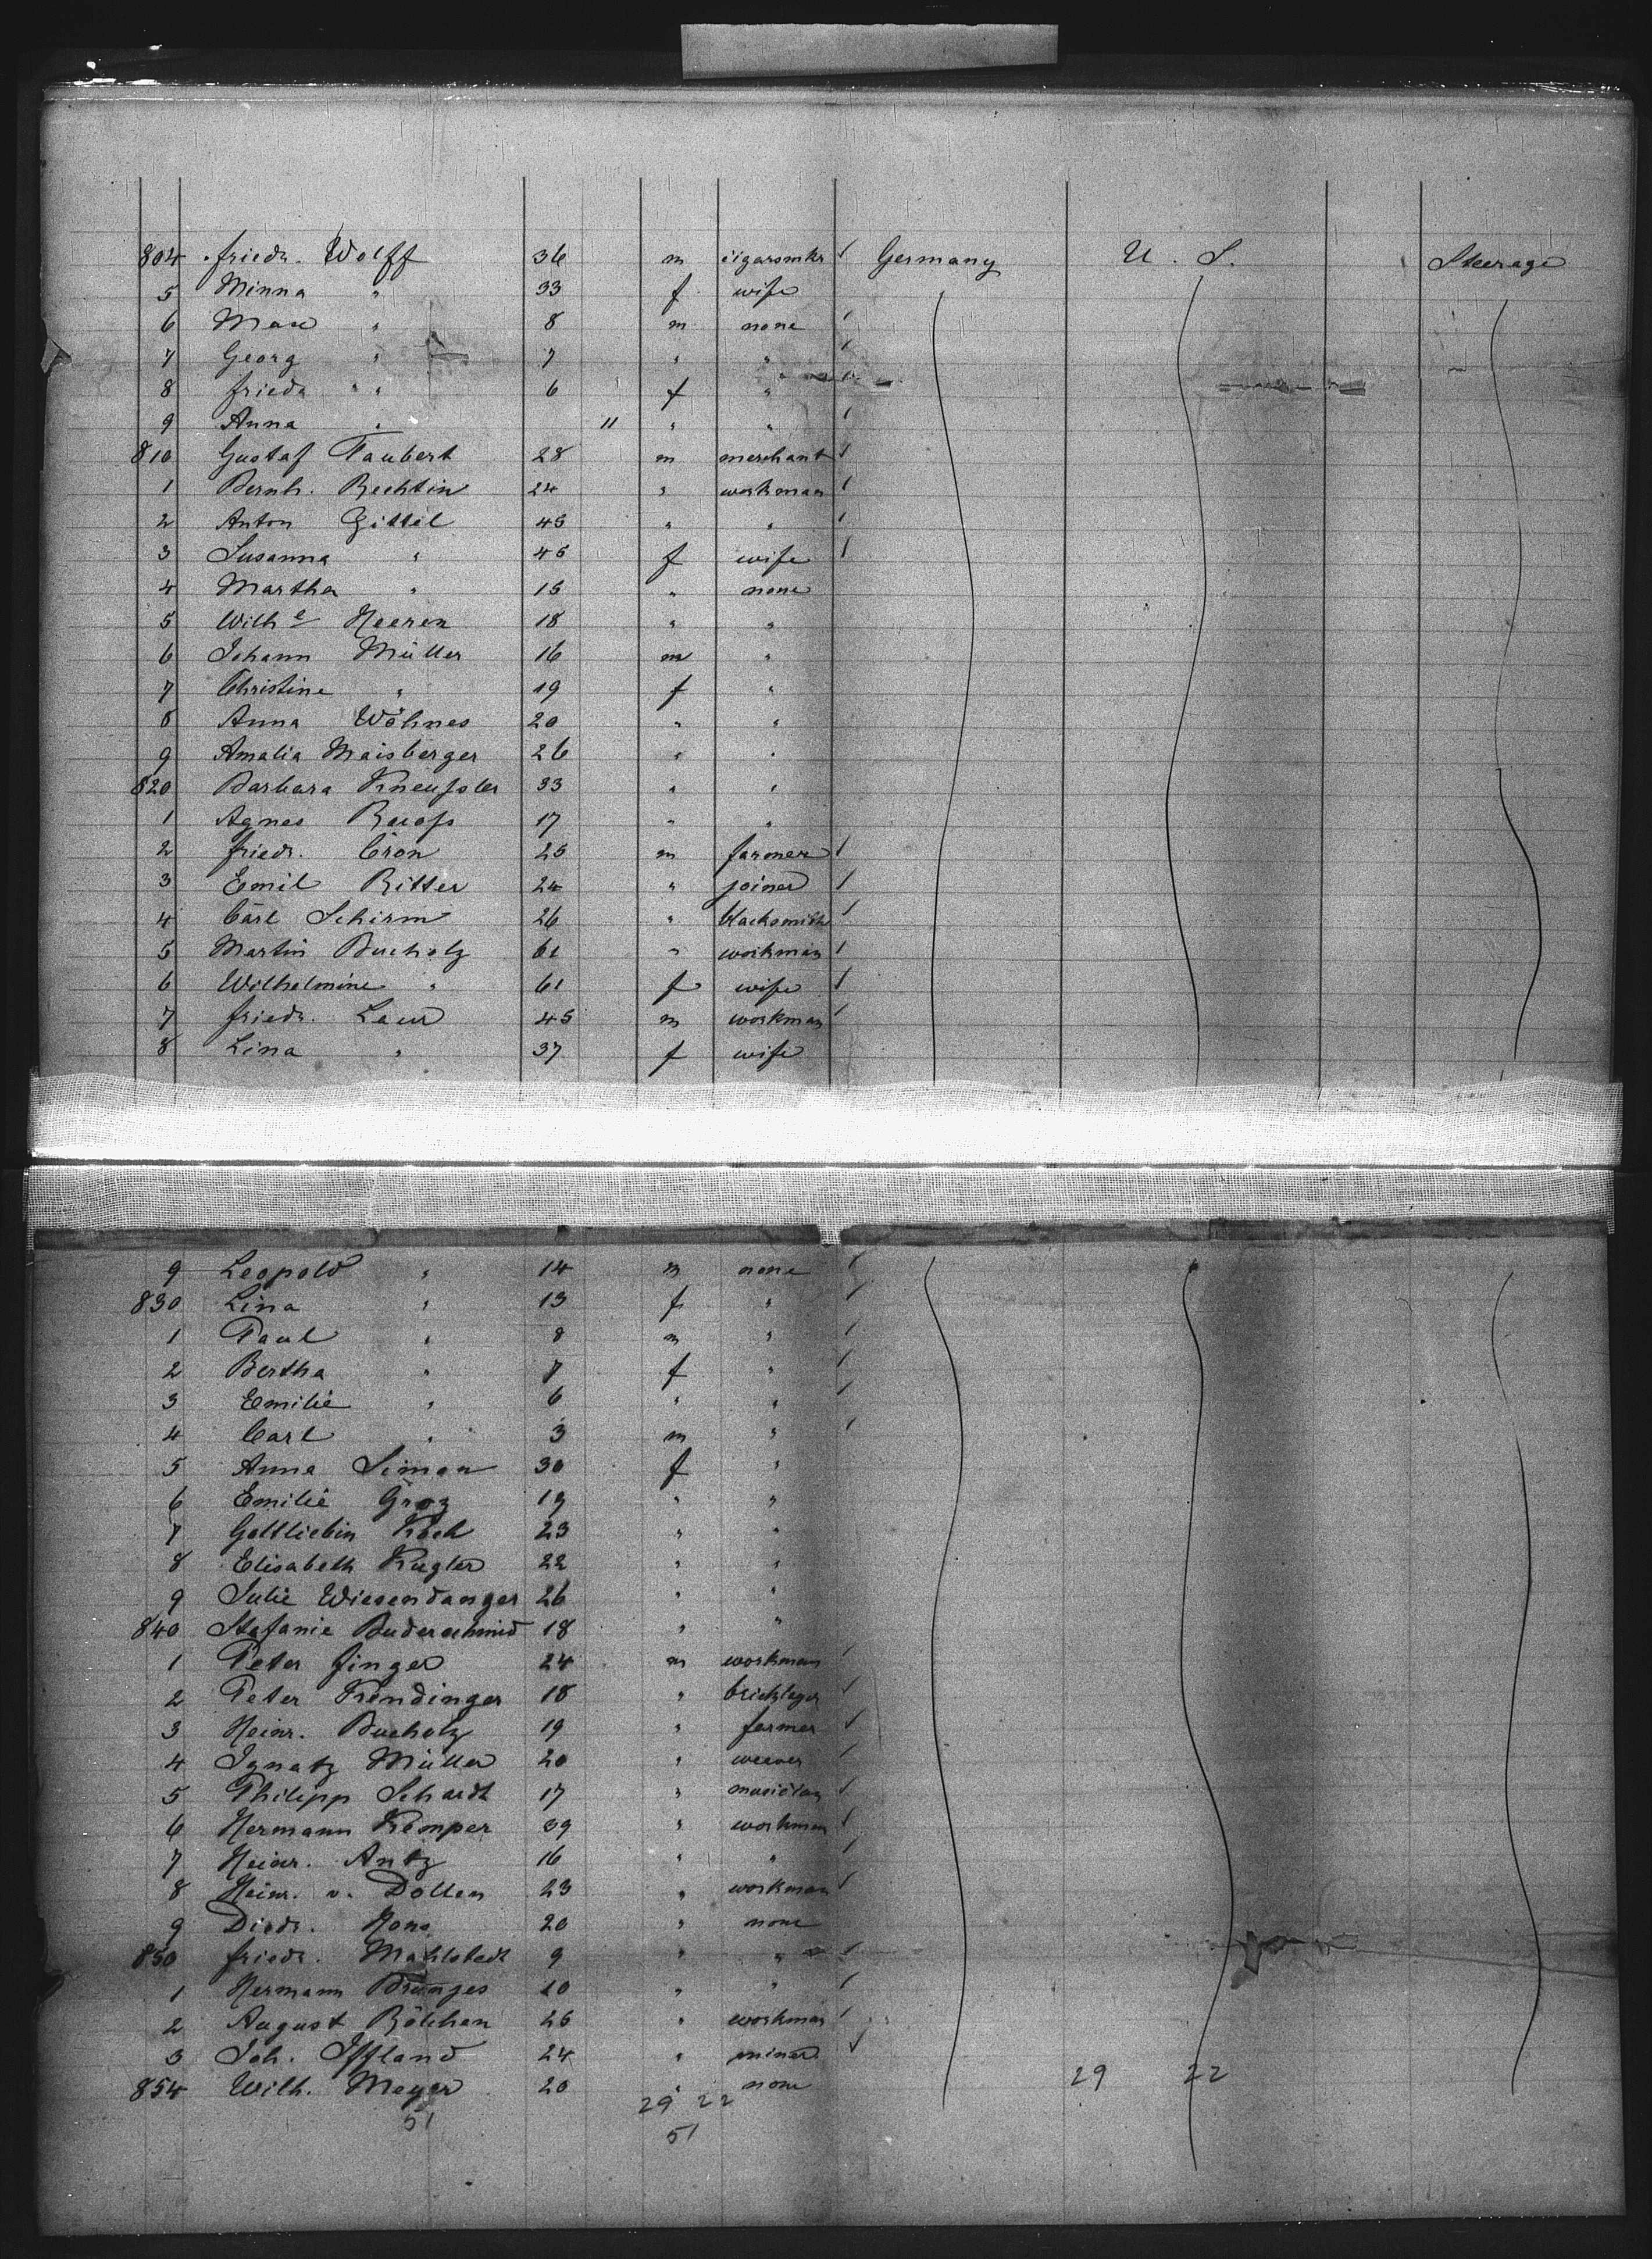 804 Friedr. Wolff 36 m cigarsmkr Germany U. S. Steerage
5 Minna " 33 f wife
6 Max " 8 m none
7 Georg " 7 " "
8 Frieda " 6 f "
9 Anna " 11 " "
810 Gustaf Taubert 28 m merchant
1 Bernh. Bechtin 24 " workman
2 Anton Gittel 45 " "
3 Susanna " 45 f wife
4 Martha " 15 " none
5 Wilhe Heeren 18 " "
6 Johann Müller 16 m "
7 Christine " 19 f "
8 Anna Wöhnes 20 " "
9 Amalia Maisberger 26 " "
820 Barbara Kneussler 33 " "
1 Agnes 17 " "
2 Friedr. Cron 25 m farmer
3 Emil Ritter 24 " joiner
4 Carl Schirm 26 " blacksmith
5 Martin Bucholz 61 " workman
6 Wilhelmine " 61 f wife
7 Friedr. Laur 45 m workman
8 Lina " 37 f wife
9 Leopold " 14 m none
830 Lina " 13 f "
1 Paul " 8 m "
2 Bertha " 7 f "
3 Emilie " 6 " "
4 Carl " 3 m "
5 Anna Simon 30 f "
6 Emilie Groz 19 " "
7 Gottliebin Koch 23 " "
8 Elisabeth Kugler 22 " "
9 Julie Wiesendanger 26 " "
840 Stefanie Buderschmid 18 " "
1 Peter Finger 24 m workman
2 Peter Kindinger 18 " bricklayer
3 Heinr. Bucholz 19 " farmer
4 Ignatz Müller 20 " weaver
5 Philipp Schardt 17 " musician
6 Hermann Kemper 39 " workman
7 Heinr. Antz 16 " "
8 Heinr. v. Dollen 23 " workman
9 Diedr. 20 " none
850 Friedr. Mahlstedt 9 " "
1 Hermann Brünjes 20 " "
2 August Bölchen 25 " workman
3 Joh. Iffland 24 " miner
854 Wilh. Meyer 20 " none 29 22
51 29 22
51